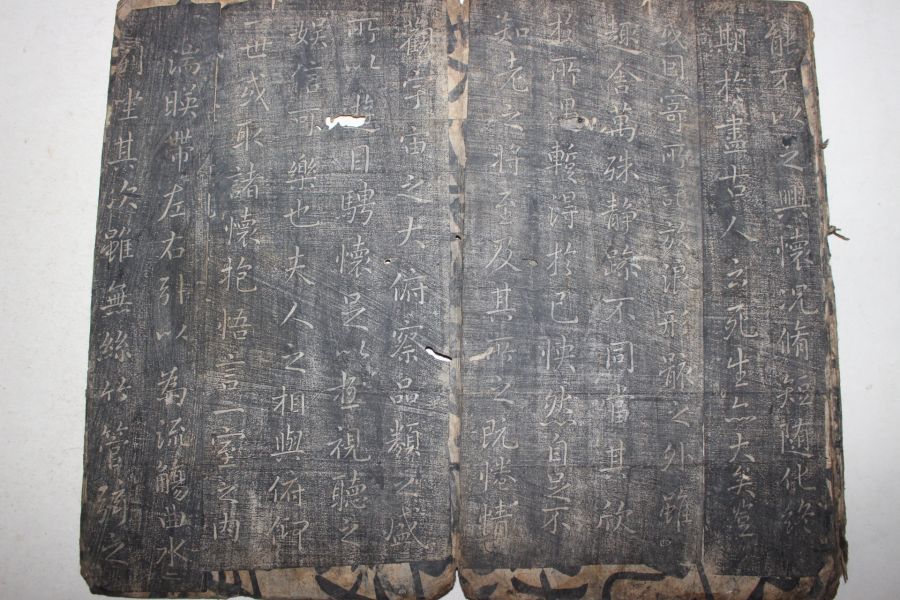 能不以之興懷況脩短随化終
期於盡古人云死生亦大矣豈
或因寄所託放浪形骸之外雖
趣舍萬殊静躁不同當其欣
於所遇蹔得於己怏然自足不
知老之將至及其所之既惓情
觀宇宙之大俯察品類之盛
所以遊目騁懷足以極視聽之
娛信可樂也夫人之相與俯仰
一世或取諸懷抱悟言一室之內
湍暎帶左右引以為流觴曲水
列坐其次雖無絲竹管弦之